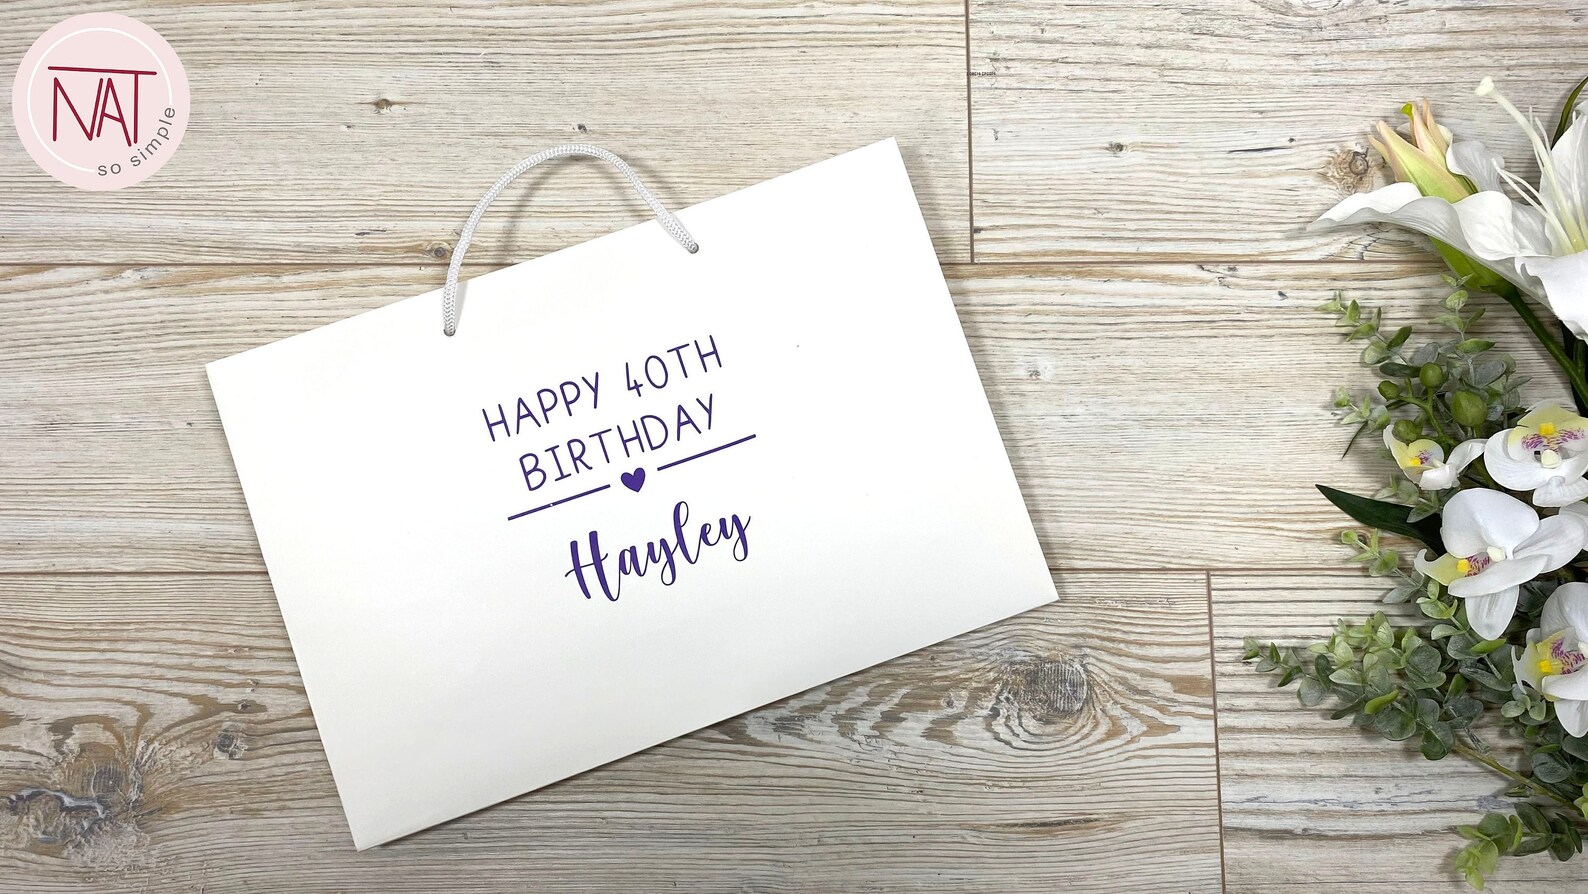 NAT
so simple
HAPPY 40TH
BIRTHDAY
Hayley